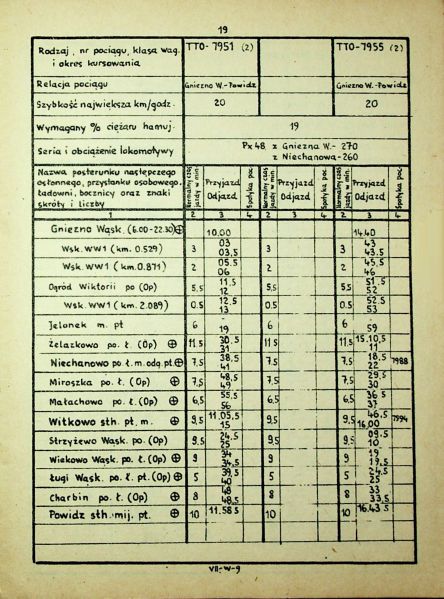 19
Rodzaj, nr pociągu, klasa wag. i okres kursowania TTO-7951 (2) TTO-7955 (2)
Relacja pociągu Gniezno W.-Powidz Gniezno W.-Powidz
Szybkość największa km/godz. 20 20
Wymagany % ciężaru hamuj. 19
Seria i obciążenie lokomotywy Px48 z Gniezna W.- 270
z Niechanowa-260
Nazwa posterunku następczego osłonnego, przystanku osobowego, ładowni, bocznicy oraz znaki skróty i liczby
Normalny czas jazdy w min. Przyjazd Odjazd Spotyka poc. Normalny czas jazdy w min. Przyjazd Odjazd Spotyka poc. Normalny czas jazdy w min. Przyjazd Odjazd Spotyka poc.
1 2 3 4 2 3 4 2 3 4
Gniezno Wąsk. (6.00-22.30) ⊕ 10.00 14.40
Wsk. WW1 (km. 0.529) 3 03 03,5 3 3 43 43,5
Wsk. WW1 (km. 0.871) 2 05,5 06 2 2 45,5 46
Ogród Wiktorii po (Op) 5,5 11,5 12 5,5 5,5 51,5 52
Wsk. WW1 (km. 2.089) 0.5 12,5 13 0.5 0.5 52,5 53
Jelonek m. pt 6 19 6 6 59
Żelazkowo po. ł. (Op) ⊕ 11,5 30,5 31 11,5 11,5 15.10,5 11
Niechanowo po. ł. m. odg. pt. ⊕ 7,5 38,5 41 7,5 7,5 18,5 22 7988
Miroszka po. ł. (Op) ⊕ 7,5 48,5 49 7,5 7,5 29,5 30
Małachowo po. ł. (Op) ⊕ 6,5 55,5 56 6,5 6,5 36,5 37
Witkowo sth. pt. m. ⊕ 9,5 11.05,5 15 9,5 9,5 46,5 16.00 7994
Strzyżewo Wąsk. po. (Op) 9,5 24,5 25 9,5 9,5 09,5 10
Wiekowo Wąsk. po. ł. (Op) ⊕ 9 34 34,5 9 9 19 19,5
Ługi Wąsk. po. ł. pt. (Op) ⊕ 5 39,5 40 5 5 24,5 25
Charbin po. ł. (Op) ⊕ 8 48 48,5 8 8 33 33,5
Powidz sth. mij. pt. ⊕ 10 11.58,5 10 10 16.43,5
VII-W-9